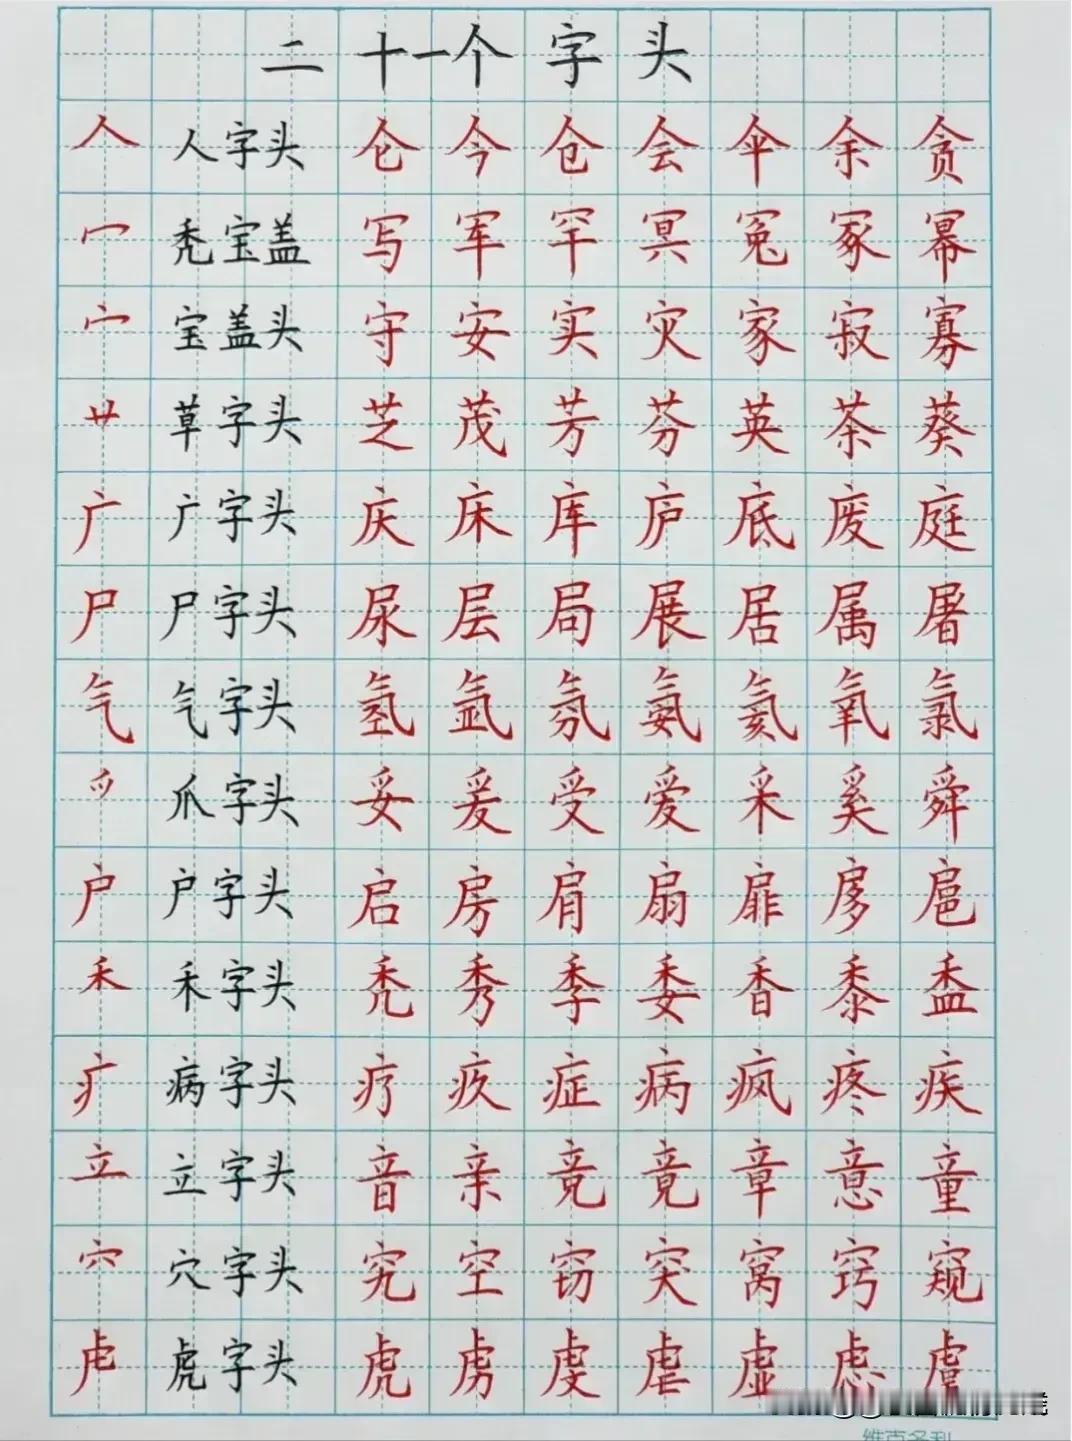 二十一个字头
人 人字头 仑 今 仓 会 伞 余 贪
冖 秃宝盖 写 军 罕 冥 冤 冢 幂
宀 宝盖头 守 安 实 灾 家 寂 寡
艹 草字头 芝 茂 芳 芬 英 茶 葵
广 广字头 庆 床 库 庐 底 废 庭
尸 尸字头 尿 层 局 展 居 属 屠
气 气字头 氢 氩 氛 氨 氦 氧 氯
爫 爪字头 妥 爰 受 爱 采 奚 舜
户 户字头 启 房 肩 扇 扉 扅 扈
禾 禾字头 秃 秀 季 委 香 黍 盉
疒 病字头 疗 疚 症 病 疯 疼 疾
立 立字头 音 亲 竞 竟 章 意 童
穴 穴字头 究 空 窃 突 窝 窍 窥
虍 虎字头 虎 虏 虔 虐 虚 虑 虞